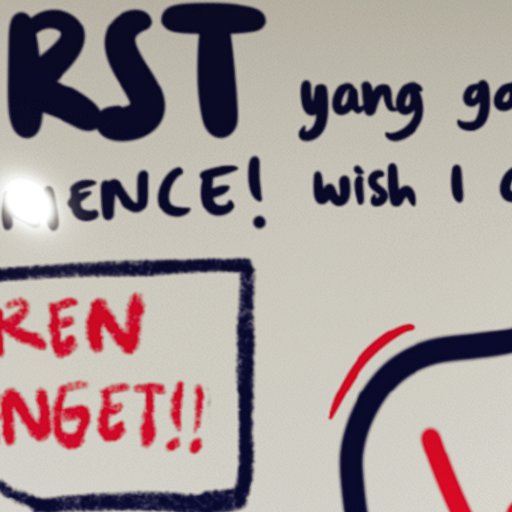 RST
yang go
ENCE!
wish I
REN
NGET!!